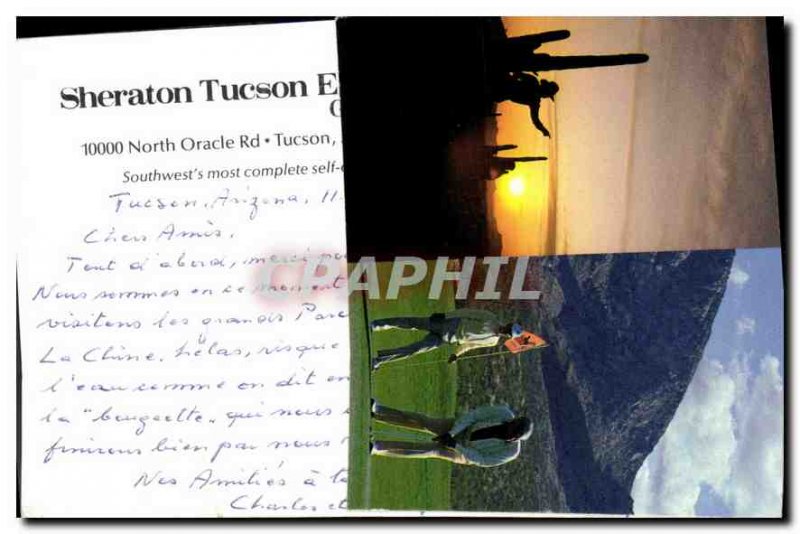 Sheraton Tucson E
10000 North Oracle Rd • Tucson,
Southwest's most complete self-
Tucson, Arizona, 11.
Chers Amis,
Tout d'abord, merci po
Nous sommes en ce moment
visitons les grands Parc
La Chine, hélas, risque
l'eau comme on dit en
la "bougeotte", qui nous
finirons bien par nous
Nos Amitiés à to
Charles et
CPAPHIL